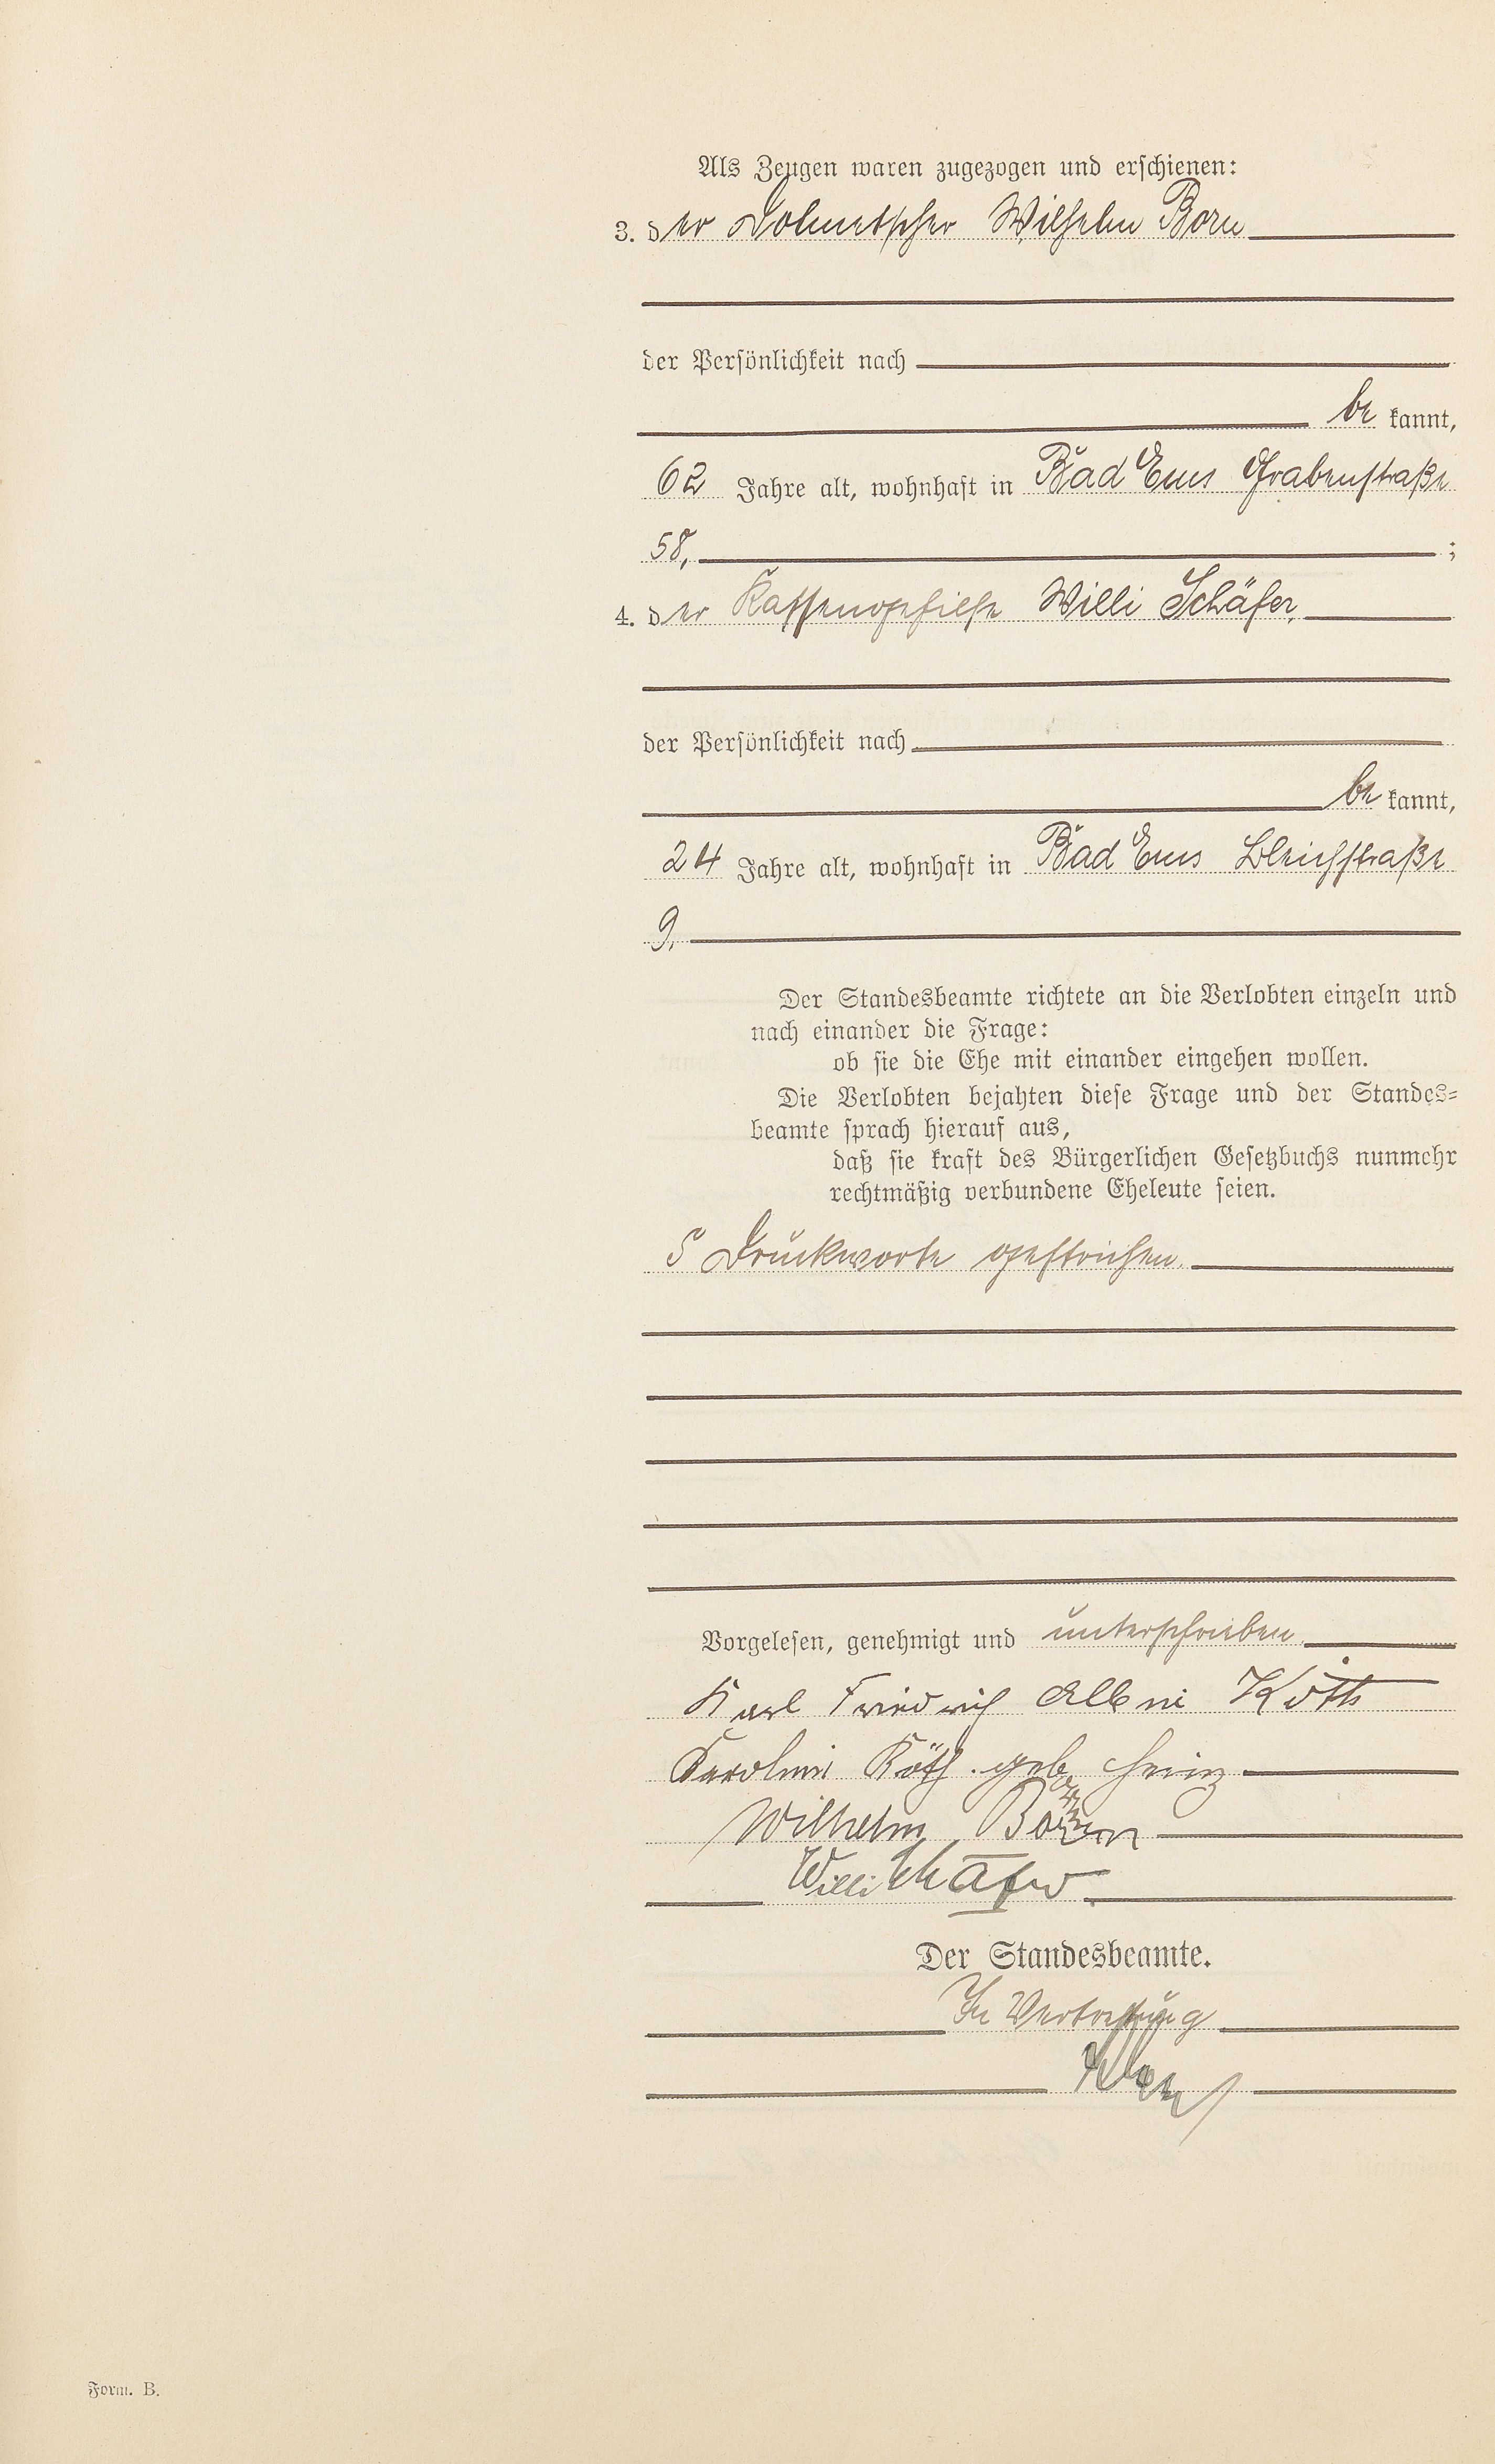 Als Zeugen waren zugezogen und erschienen:
3. der Dolmetscher Wilhelm Born
der Persönlichkeit nach
be kannt,
62 Jahre alt, wohnhaft in Bad Ems Grabenstraße
58, ;
4. der Kassengehilfe Willi Schäfer,
der Persönlichkeit nach
be kannt,
24 Jahre alt, wohnhaft in Bad Ems Bleichstraße
9,
Der Standesbeamte richtete an die Verlobten einzeln und
nach einander die Frage:
ob sie die Ehe mit einander eingehen wollen.
Die Verlobten bejahten diese Frage und der Standes=
beamte sprach hierauf aus,
daß sie kraft des Bürgerlichen Gesetzbuchs nunmehr
rechtmäßig verbundene Eheleute seien.
5 Druckworte gestrichen.
Vorgelesen, genehmigt und unterschrieben.
Karl Friedrich Köth
Karoline Köth geb. Heinz
Wilhelm Born
Willi Schäfer
Der Standesbeamte.
In Vertretung
Form. B.